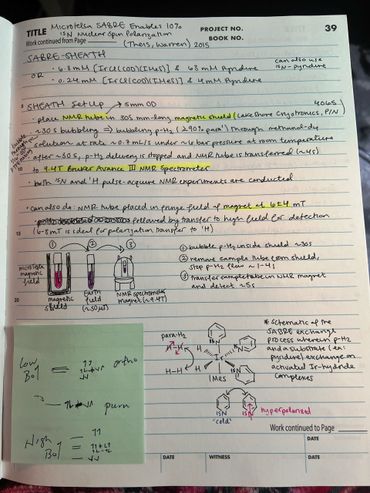 39
TITLE Microtesla SABRE Enables 10%
15N Nuclear Spin Polarization
PROJECT NO.
BOOK NO.
Work continued from Page
(Theis, Warren) 2015
SABRE-SHEATH
• 6.3 mM [IrCl(COD)(IMes)] & 63 mM Pyridine
can also use
15N-pyridine
OR
• 0.24 mM [IrCl(COD)(IMes)] & 4 mM Pyridine
SHEATH Set Up → 5mm OD
• place NMR tube in 30.5 mm-long magnetic shield (Lakeshore Cryotronics, P/N
4065)
• ~30s bubbling → bubbling p-H2 (≥90% para) through methanol-d4
solution at rate ~0.7 mL/s under ~6 bar pressure at room temperature
• after ~30s, p-H2 delivery is stopped and NMR tube is transferred (~4s)
to 9.4T Bruker Avance III NMR Spectrometer
• both 15N and 1H pulse-acquire NMR experiments are conducted
• can also do: NMR tube placed in fringe field of magnet at 6±4 mT
followed by transfer to high field for detection
(6-8 mT is ideal for polarization transfer to 1H)
① ② ③
microtesla
magnetic
field
magnetic
shield
Earth
field
(~50μT)
NMR spectrometer
magnet (~9.4T)
① bubble p-H2 inside shield ~30s
② remove sample tube from shield,
stop p-H2 flow ~1-4s
③ transfer sample tube in NMR magnet
and detect ~5s
Low
B0↑
ortho
para
High
B0↑
para-H2
H-H
H
H
Ir
IMes
N
15N
"cold"
15N
hyperpolarized
* Schematic of the
SABRE exchange
process wherein p-H2
and a substrate (ex:
pyridine) exchange on
activated Ir-hydride
complexes
Work continued to Page
DATE
WITNESS
DATE